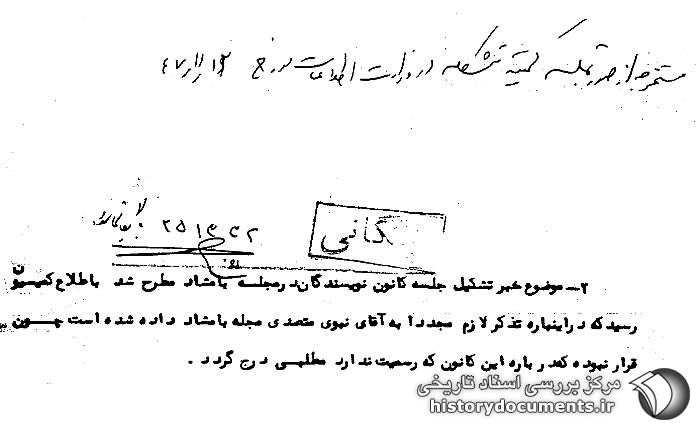 مستخرجه از صورتجلسه کمیته متشکله در وزارت اطلاعات مورخ
کانون
۲۵۱۳۳۲
۲- موضوع خبر تشکیل جلسه کانون نویسندگان در مجله بامشاد مطرح شد باطلاع کمیسیون
رسید که در اینباره تذکر لازم مجددا به آقای نبوی متصدی مجله بامشاد داده شده است چون
قرار نبوده که در باره این کانون که رسمیت ندارد مطلبی درج گردد .
مرکز بررسی اسناد تاریخی
historydocuments.ir